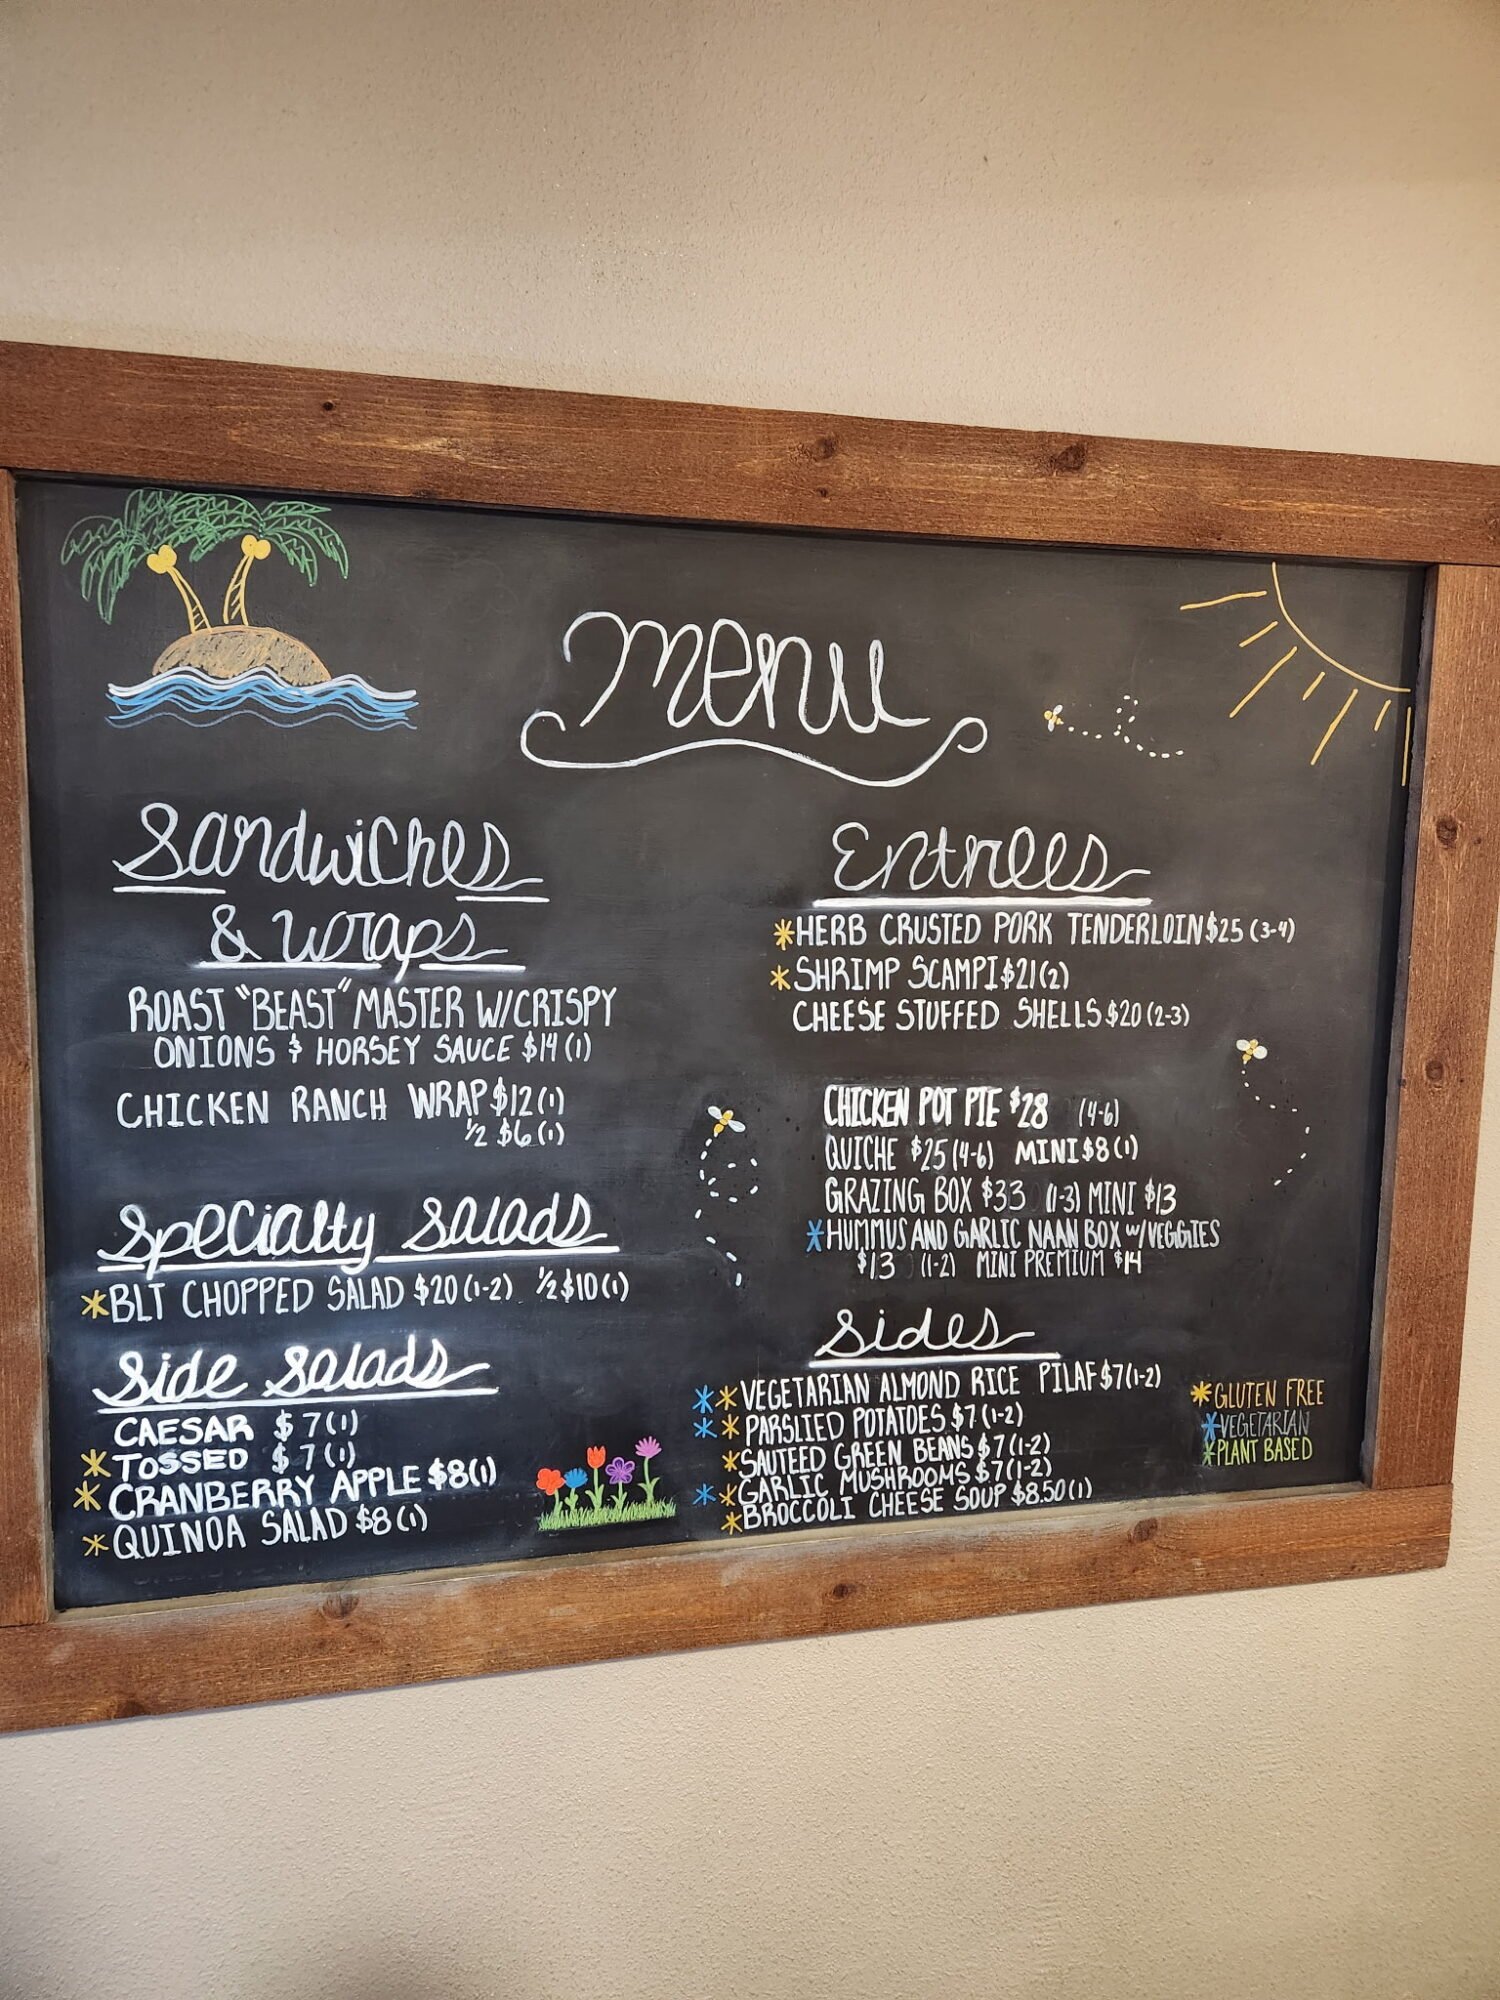 Menu
Sandwiches
& Wraps
ROAST "BEAST" MASTER W/CRISPY
ONIONS & HORSEY SAUCE $14 (1)
CHICKEN RANCH WRAP $12 (1)
1/2 $6 (1)
Specialty Salads
*BLT CHOPPED SALAD $20 (1-2) 1/2 $10 (1)
Side Salads
CAESAR $7 (1)
*TOSSED $7 (1)
*CRANBERRY APPLE $8 (1)
*QUINOA SALAD $8 (1)
Entrees
*HERB CRUSTED PORK TENDERLOIN $25 (3-4)
*SHRIMP SCAMPI $21 (2)
CHEESE STUFFED SHELLS $20 (2-3)
CHICKEN POT PIE $28 (4-6)
QUICHE $25 (4-6) MINI $8 (1)
GRAZING BOX $33 (1-3) MINI $13
*HUMMUS AND GARLIC NAAN BOX W/VEGGIES
$13 (1-2) MINI PREMIUM $14
Sides
**VEGETARIAN ALMOND RICE PILAF $7 (1-2)
**PARSLIED POTATOES $7 (1-2)
*SAUTEED GREEN BEANS $7 (1-2)
**GARLIC MUSHROOMS $7 (1-2)
*BROCCOLI CHEESE SOUP $8.50 (1)
*GLUTEN FREE
*VEGETARIAN
*PLANT BASED